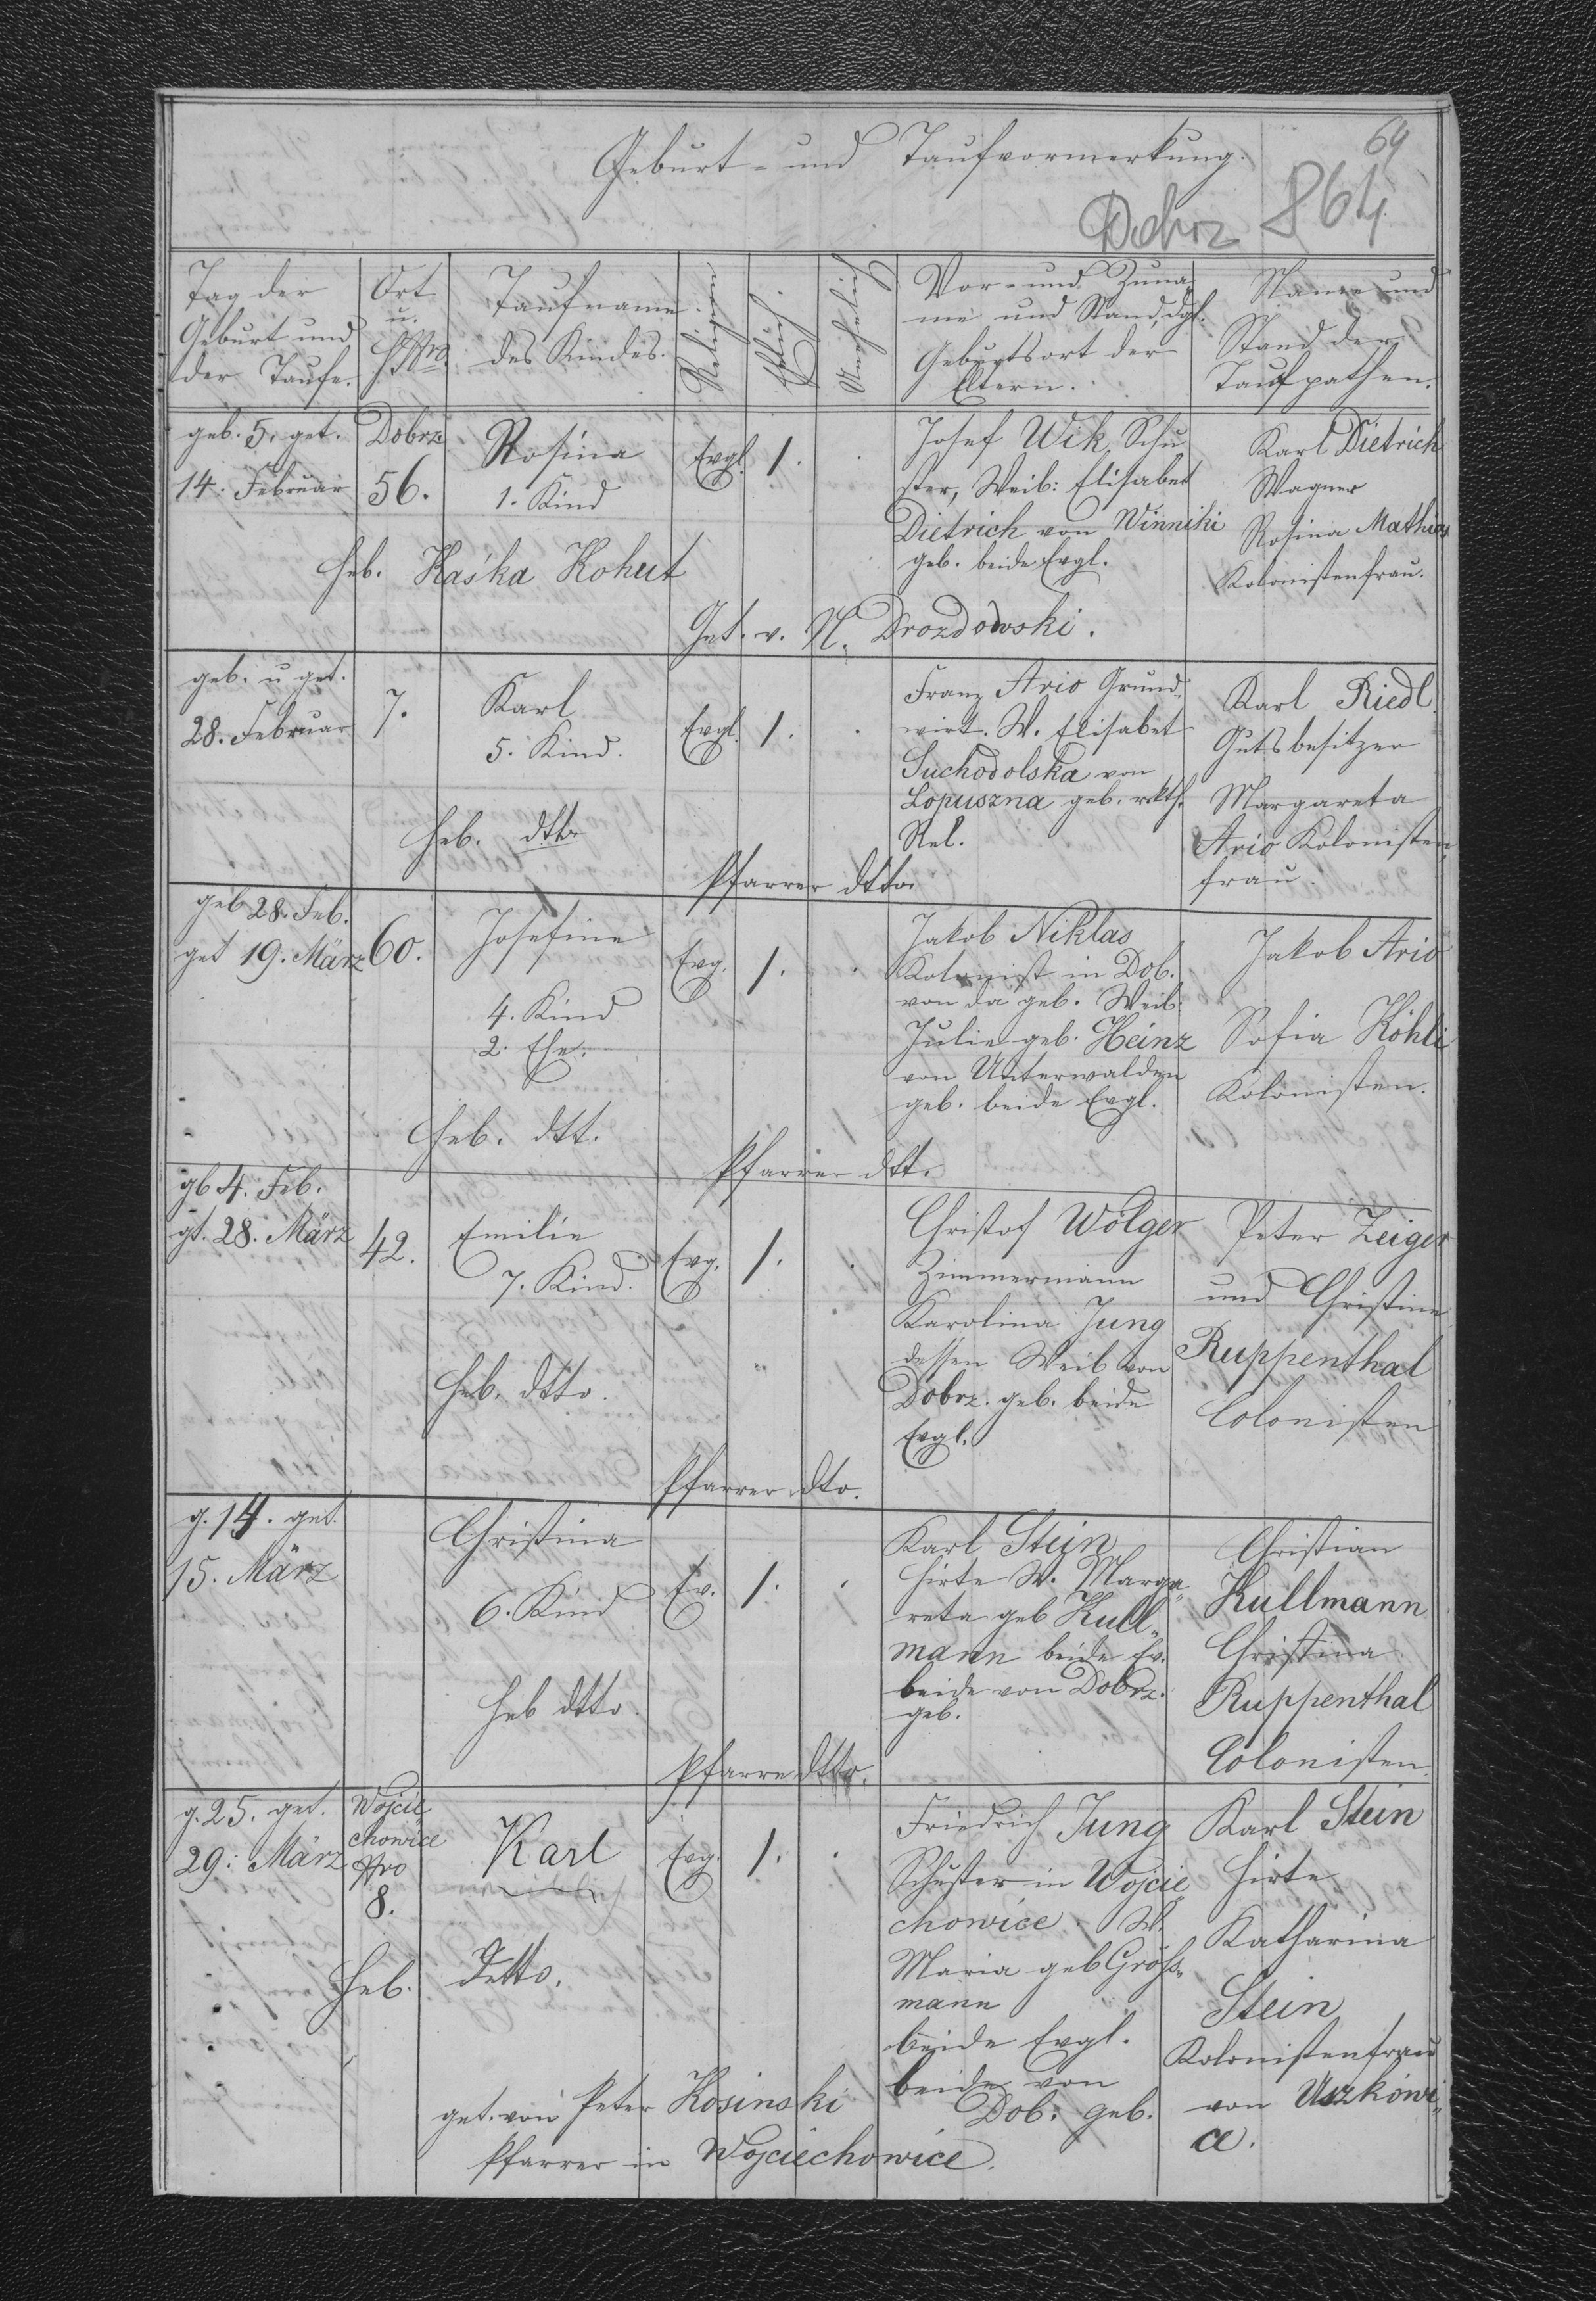 64
Geburt- und Taufvormerkung.
Dobrz 864
Tag der
Geburt und
der Taufe.
Ort
u.
HNro.
Taufname
des Kindes.
Religion
Ehlich.
Unehelich
Vor- und Zuna-
me und Stand, dgl.
Geburtsort der
Eltern.
Name und
Stand der
Taufpathen.
geb. 5. get.
14. Februar
Dobrz
56.
Rosina
1. Kind
Evgl.
1.
Josef Wik Schu
ster, Weib: Elisabet
Dietrich von Winniki
geb. beide Evgl.
Karl Dietrich
Wagner
Rosina Mathies
Kolonistenfrau.
Heb. Kaśka Kohut
Get. v. N. Drozdowski.
geb. u get.
28. Februar
7.
Karl
5. Kind.
Evgl.
1.
Franz Ario Grund-
wirt. W. Elisabet
Suchodolska von
Lopuszna geb. rkth.
Rel.
Karl Riedl
Gutsbesitzer
Margareta
Ario Kolonisten
frau.
Heb. dtto
Pfarrer dtto.
geb 28. Feb.
get 19. März
60.
Josefine
4. Kind
2. Ehe.
Evg.
1.
Jakob Niklas
Kolonist in Dob.
von da geb. Weib.
Julie geb. Heinz
von Unterwalden
geb. beide Evgl.
Jakob Ario
Sofia Köhli
Kolonisten.
Heb. dtt.
Pfarrer dtt.
gb 4. Feb.
gt. 28. März
42.
Emilie
7. Kind.
Evg.
1.
Christof Wolger
Zimmermann
Karolina Jung
dessen Weib von
Dobrz. geb. beide
Evgl.
Peter Zeiger
und Christine
Ruppenthal
Colonisten
Heb. dtto.
Pfarrer dto.
g. 14. get.
15. März
Christina
6. Kind
Ev.
1.
Karl Stein
Hirte W. Marga-
reta geb Kull-
mann beide Ev.
beide von Dobrz.
geb.
Christian
Kullmann
Christina
Ruppenthal
Colonisten.
Heb dtto.
Pfarre dtto.
g. 25. get.
29. März
Wojcie
chowice
Nro
8.
Karl
Evg.
1.
Friedrich Jung
Schuster in Wojcie
chowice. W.
Maria geb Gröss-
mann
beide Evgl.
beide von
Dob: geb.
Karl Stein
Hirte
Katharina
Stein
Kolonistenfrau
von Uszkowi-
ce.
Heb. Detto.
get. von Peter Kosinski
Pfarrer in Wojciechowice.